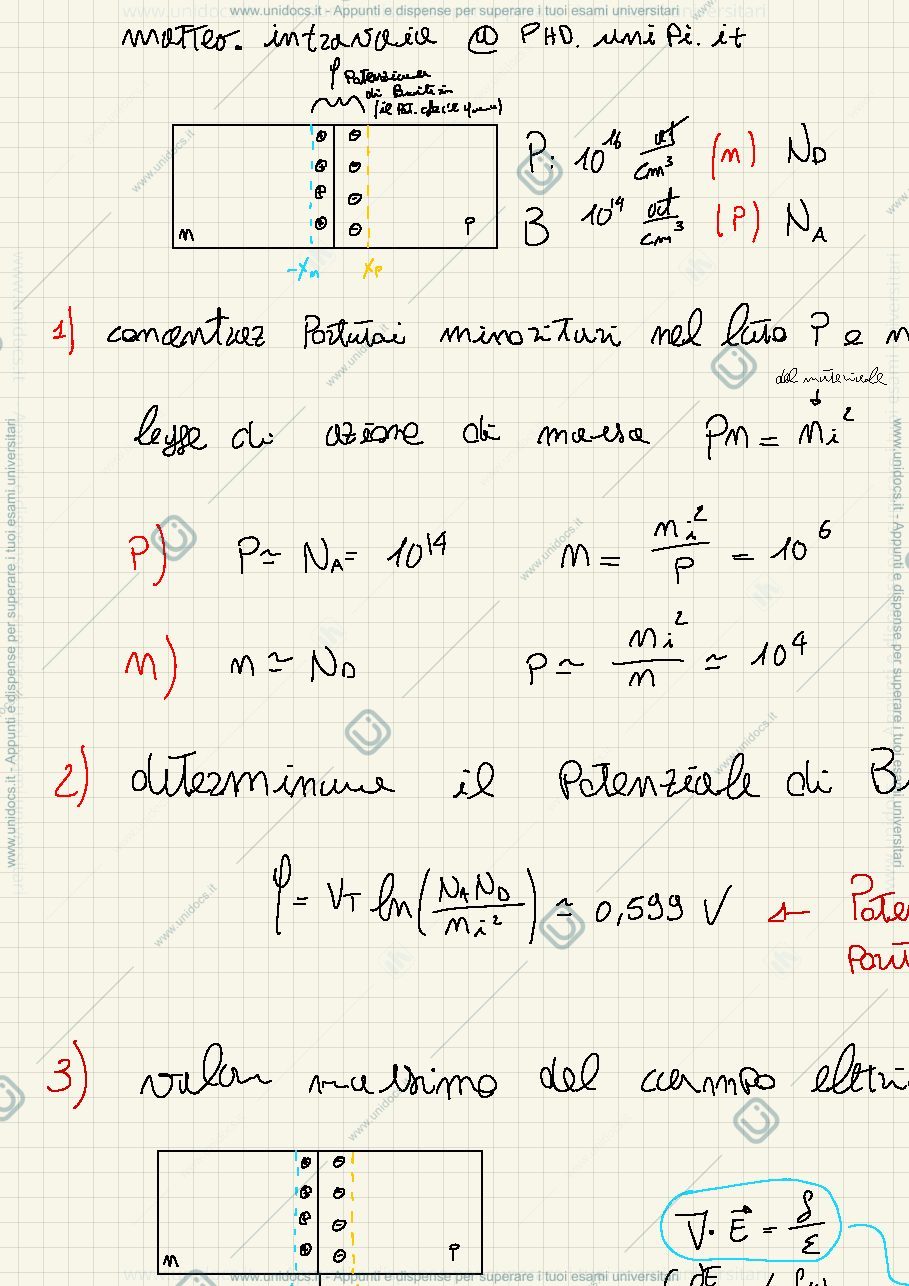 www.unidocs.it - Appunti e dispense per superare i tuoi esami universitari
matteo.intravaia @ PHD.unipi.it
φ Potenziale
di Built in
P: 10^16 at/cm^3 (n) N_D
B 10^14 at/cm^3 (P) N_A
n
P
-x_n x_p
1) concentraz Portatori minoritari nel lato P e n
del materiale
legge di azione di massa Pn = n_i^2
P) P ≃ N_A = 10^14 n = n_i^2/P = 10^6
n) n ≃ N_D P ≃ n_i^2/n ≃ 10^4
2) determinare il Potenziale di B
φ = V_T ln(N_A N_D/n_i^2) ≃ 0,599 V ← Pote
3) valor massimo del campo elettri
n
P
∇·E = δ/ε
dE
www.unidocs.it - Appunti e dispense per superare i tuoi esami universitari